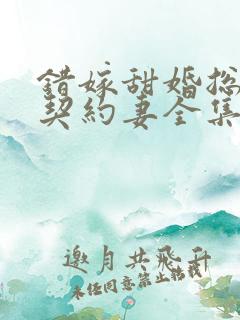 錯嫁甜婚总
契約妻全集
邀月共飛升
未任同意禁止転載